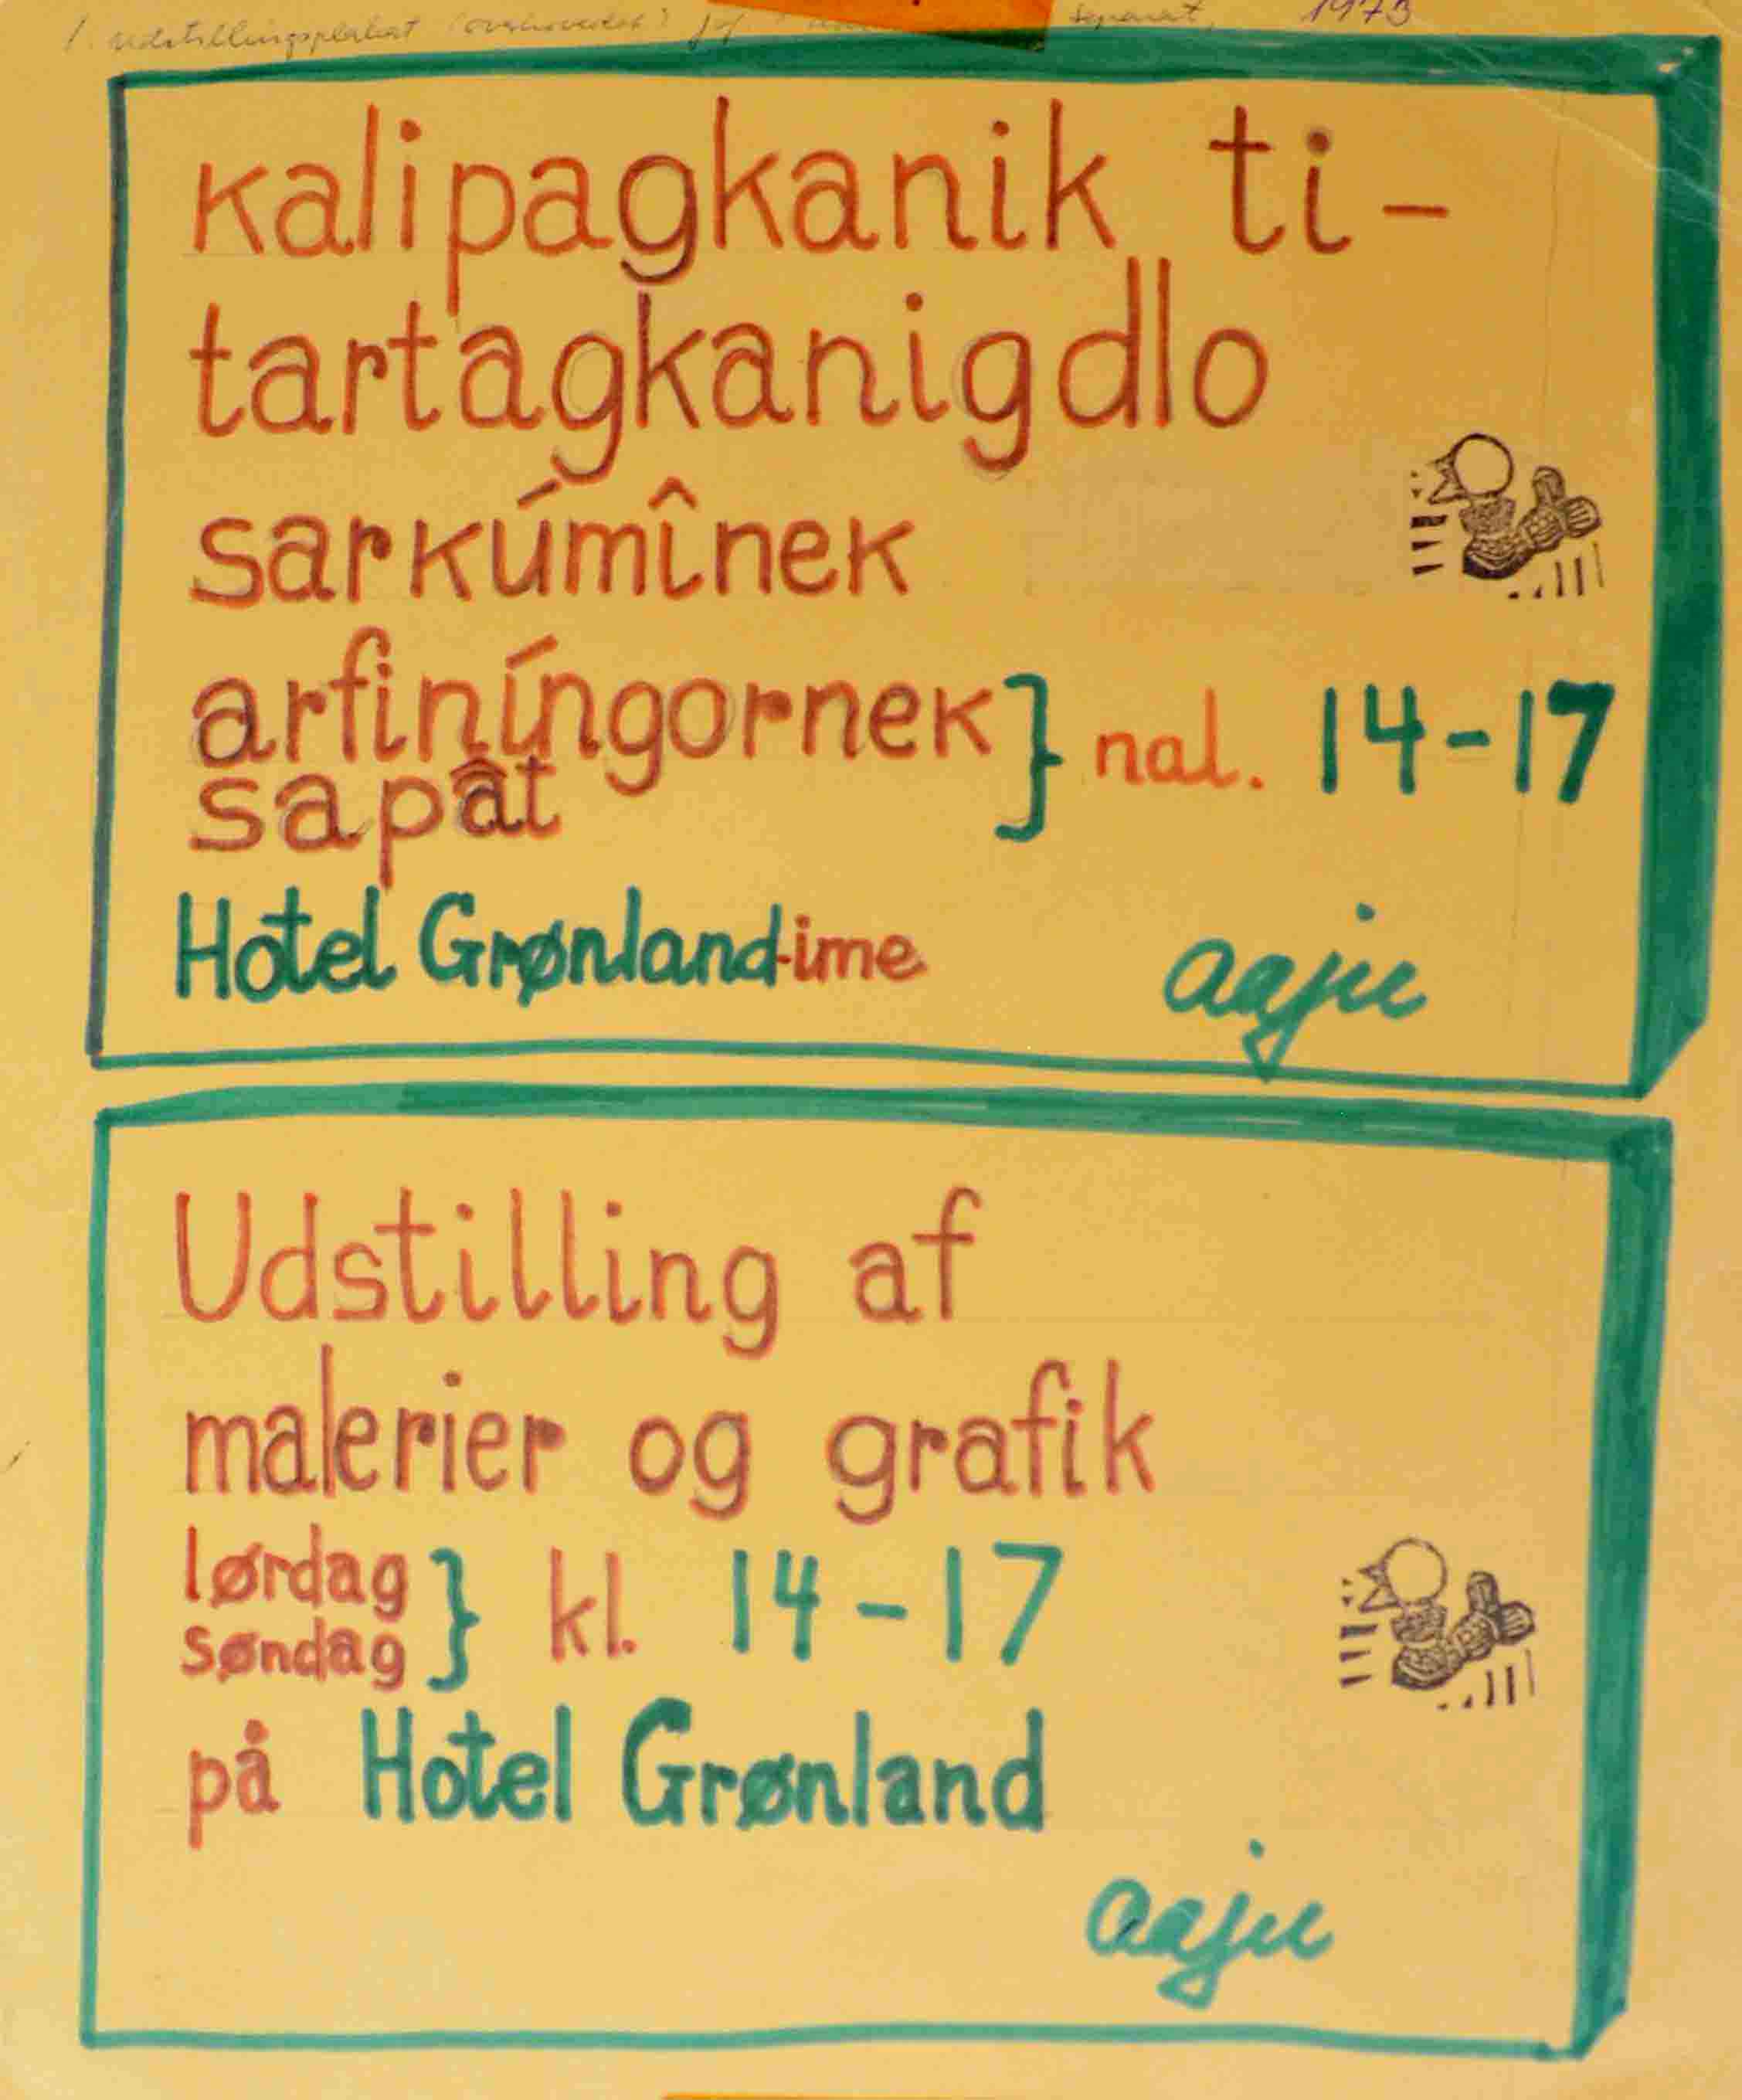 1. udstillingsplakat (overhovedet) separat, 1973
ĸalipagkanik ti-
tartagkanigdlo
sarĸúmîneĸ
arfiníngorneĸ } nal. 14-17
sapât
Hotel Grønland-ime
aaju
Udstilling af
malerier og grafik
lørdag } kl. 14-17
søndag
på Hotel Grønland
aaju